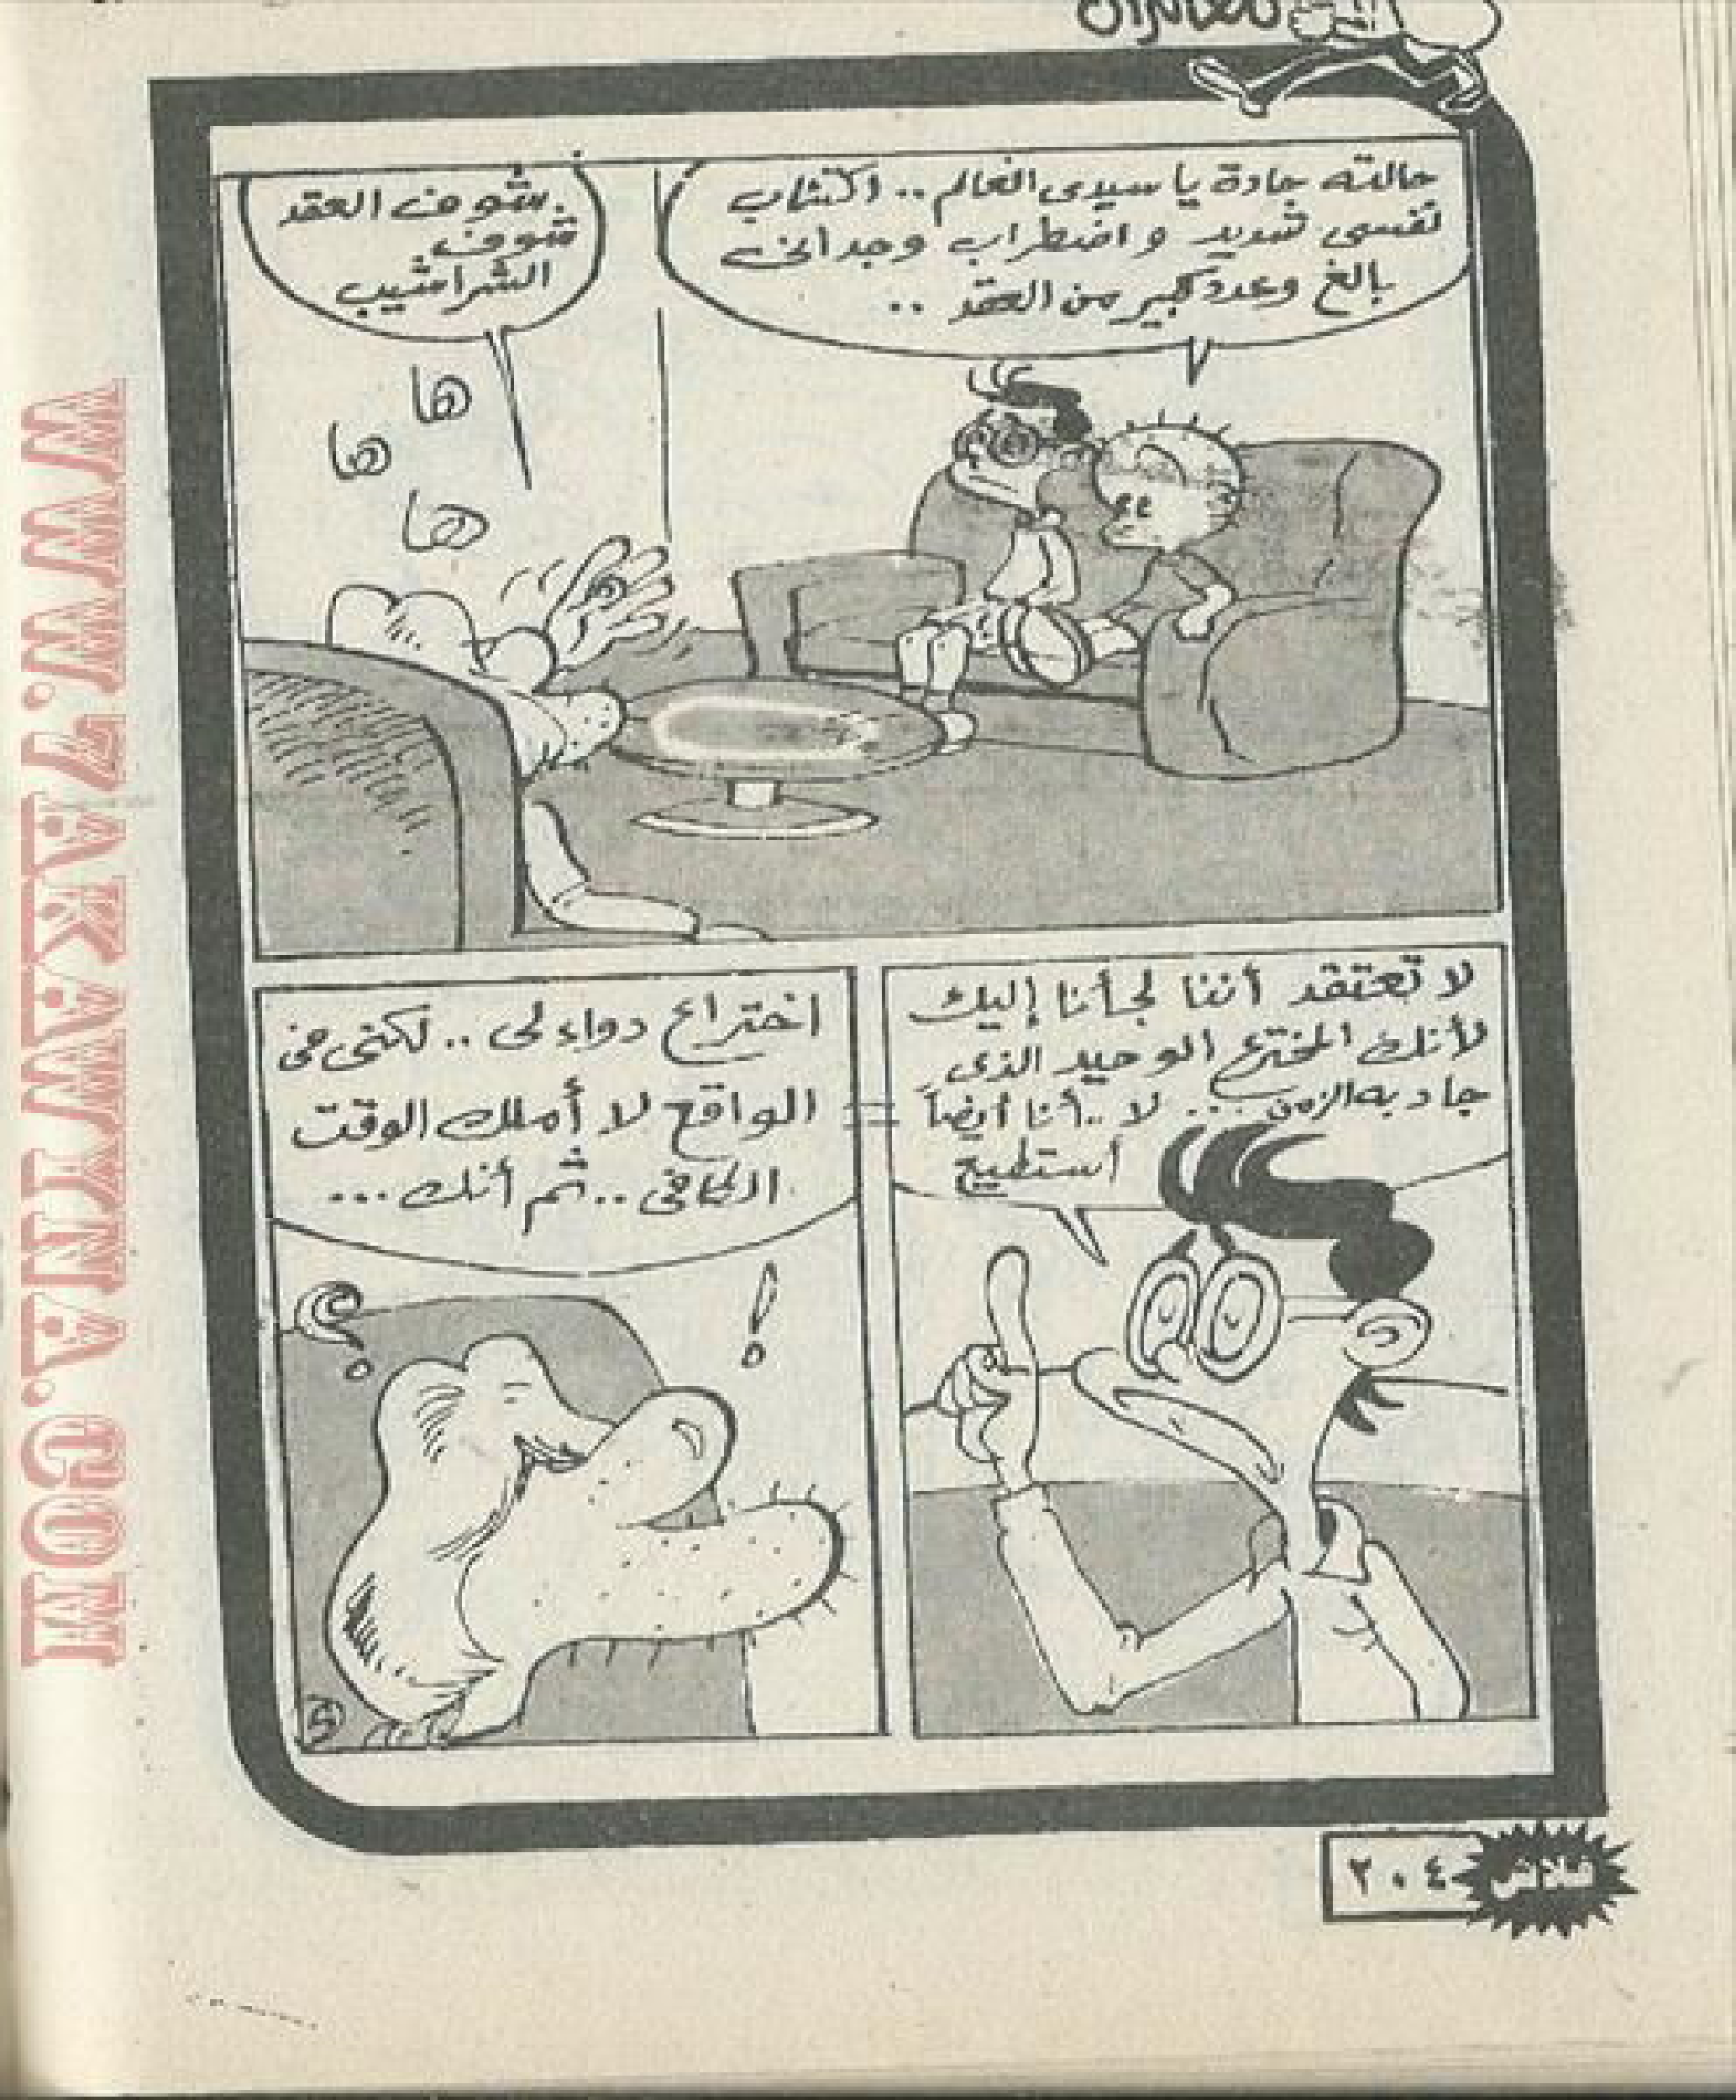 حالته جادة يا سيدى العالم .. اكتئاب
نفسى شديد واضطراب وجدانى
بالغ وعدد كبير من العقد ..
شوف العقد
شوف
الشراشيب
ها
ها
ها
لا تعتقد أننا لجأنا إليك
لأنك المخترع الوحيد الذى
جاد به الزمن ... لا .. أنا أيضاً
أستطيع
اختراع دواء لى .. لكننى فى
الواقع لا أملك الوقت
الكافى .. ثم أنك ...
؟
!
فلاش
٢٠٤
WWW.7AKAWTNA.COM